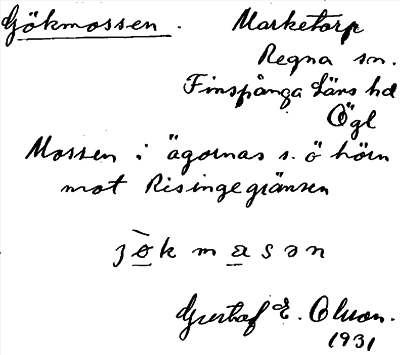 Gökmossen. Marketorp
Regna sn.
Finspånga Läns hd
Ögl
Mossen i ägornas s. ö hörn
mot Risingegränsen
jø̀kmasən
Gustaf E. Olson.
1931